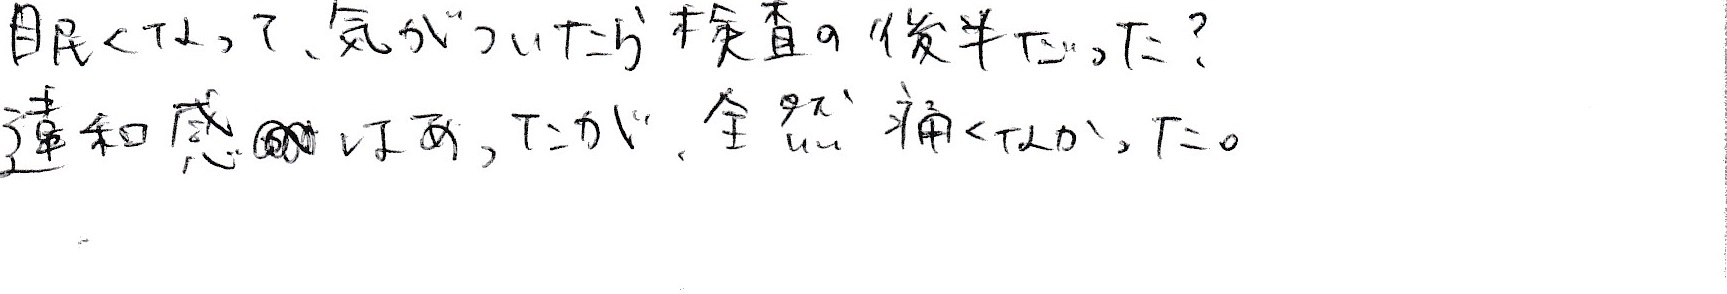 眠くなって、気がついたら検査の後半だった?
違和感はあったが、全然痛くなかった。